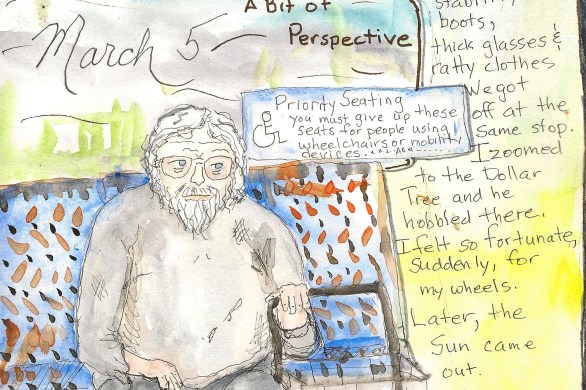 A Bit of
Perspective
March 5
Priority Seating
you must give up these
seats for people using
wheelchairs or mobility
devices....
stability
boots,
thick glasses &
ratty clothes
We got
off at the
same stop.
I zoomed
to the Dollar
Tree and he
hobbled there.
I felt so fortunate,
Suddenly, for
my wheels.
Later, the
Sun came
out.